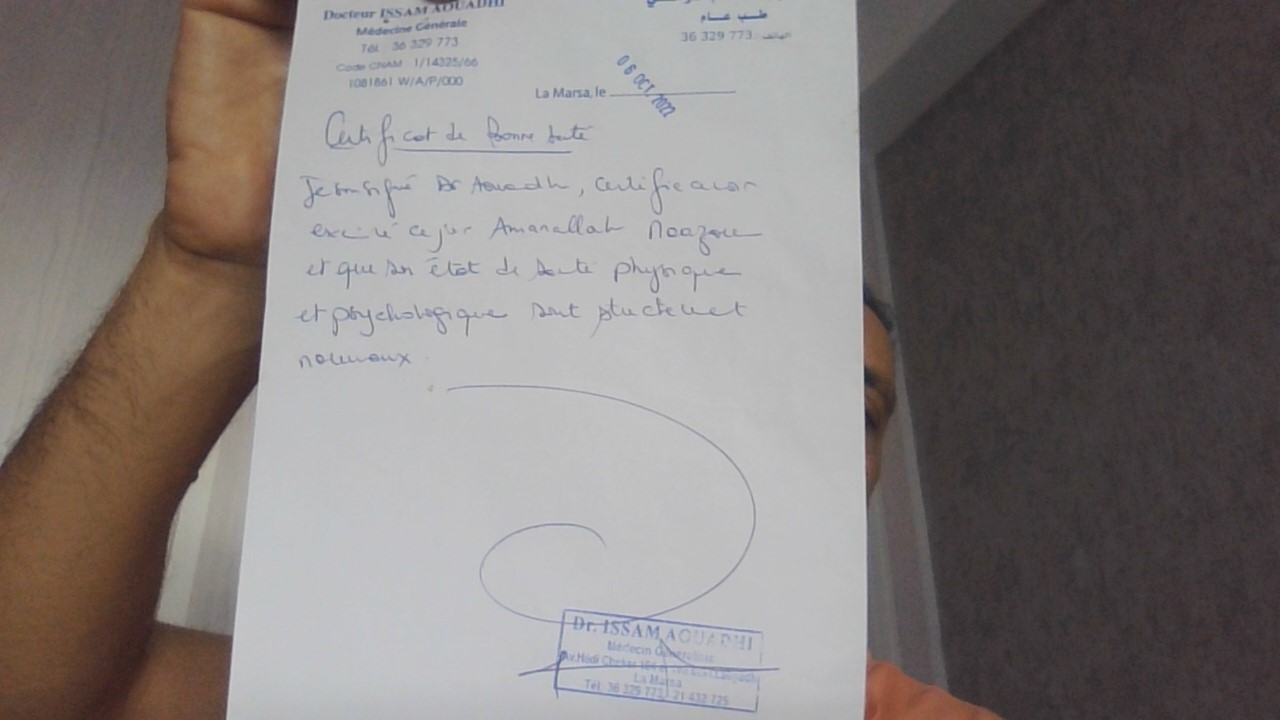 Docteur ISSAM AOUADHI
Médecine Générale
Tél. 36 329 773
Code CNAM 1/14325/66
1081861 W/A/P/000
طب عام
الهاتف 36 329 773
La Marsa, le 06 OCT. 2022
Certificat de Bonne Santé
Je soussigné Dr Aouadhi, certifie avoir
examiné ce jour Amanallah
et que son état de santé physique
et psychologique sont strictement
normaux.
Dr. ISSAM AOUADHI
Médecin Généraliste
Av. Hédi Cheker
La Marsa
Tél. 36 329 773 / 21 432 725